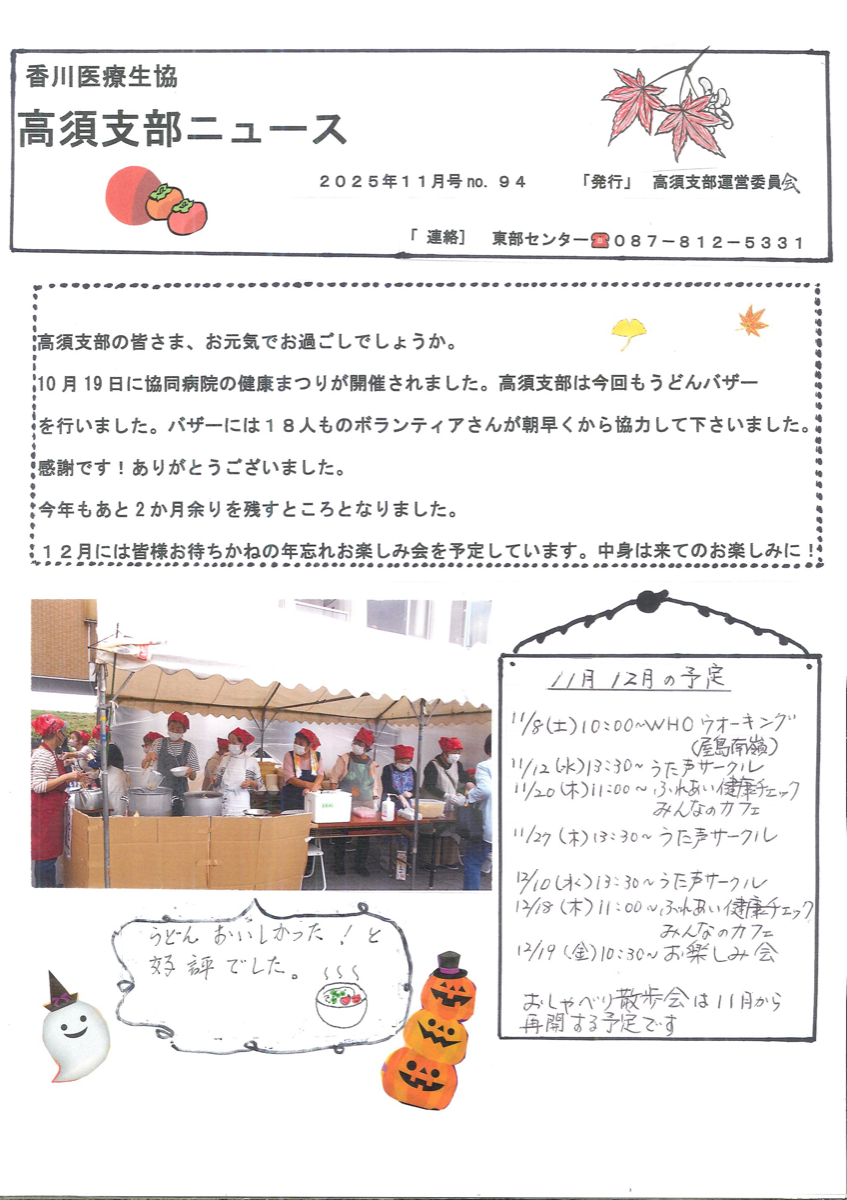 香川医療生協
高須支部ニュース
２０２５年１１月号no. ９４　「発行」　高須支部運営委員会
「 連絡］　東部センター☎０８７－８１２－５３３１
高須支部の皆さま、お元気でお過ごしでしょうか。
10月19日に協同病院の健康まつりが開催されました。高須支部は今回もうどんバザー
を行いました。バザーには１８人ものボランティアさんが朝早くから協力して下さいました。
感謝です！ありがとうございました。
今年もあと2か月余りを残すところとなりました。
１２月には皆様お待ちかねの年忘れお楽しみ会を予定しています。中身は来てのお楽しみに！
11月 12月の予定
11/8(土)10:00~WHOウオーキング
(屋島南嶺)
11/12(水)13:30~うた声サークル
11/20(木)11:00~ふれあい健康チェック
みんなのカフェ
11/27(木)13:30~うた声サークル
12/10(水)13:30~うた声サークル
12/18(木)11:00~ふれあい健康チェック
みんなのカフェ
12/19(金)10:30~お楽しみ会
おしゃべり散歩会は11月から
再開する予定です
うどん おいしかった！と
好評でした。